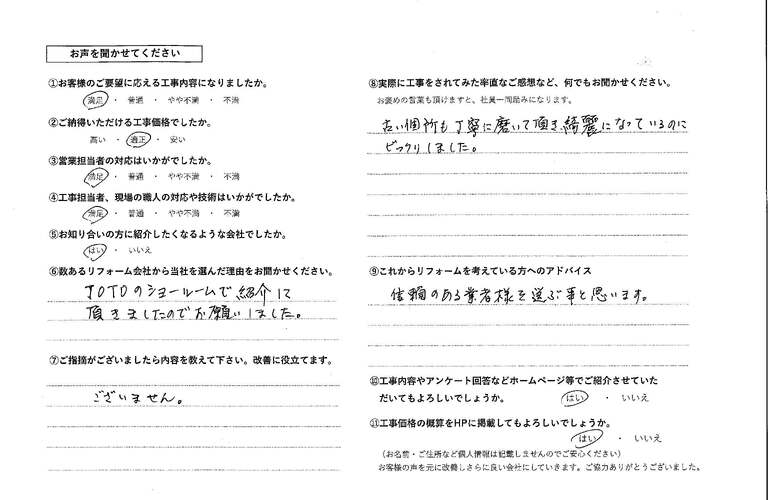 お声を聞かせてください
①お客様のご要望に応える工事内容になりましたか。
満足 ・ 普通 ・ やや不満 ・ 不満
②ご納得いただける工事価格でしたか。
高い ・ 適正 ・ 安い
③営業担当者の対応はいかがでしたか。
満足 ・ 普通 ・ やや不満 ・ 不満
④工事担当者、現場の職人の対応や技術はいかがでしたか。
満足 ・ 普通 ・ やや不満 ・ 不満
⑤お知り合いの方に紹介したくなるような会社でしたか。
はい ・ いいえ
⑥数あるリフォーム会社から当社を選んだ理由をお聞かせください。
TOTOのショールームで紹介に
頂きましたのでお願いしました。
⑦ご指摘がございましたら内容を教えて下さい。改善に役立てます。
ございません。
⑧実際に工事をされてみた率直なご感想など、何でもお聞かせください。
お褒めの言葉も頂けますと、社員一同励みになります。
古い個所も丁寧に磨いて頂き綺麗になっているのに
びっくりしました。
⑨これからリフォームを考えている方へのアドバイス
信頼のある業者様を選ぶ事と思います。
⑩工事内容やアンケート回答などホームページ等でご紹介させていた
だいてもよろしいでしょうか。 はい ・ いいえ
⑪工事価格の概算をHPに掲載してもよろしいでしょうか。
はい ・ いいえ
（お名前・ご住所など個人情報は記載しませんのでご安心ください）
お客様の声を元に改善しさらに良い会社にしていきます。ご協力ありがとうございました。